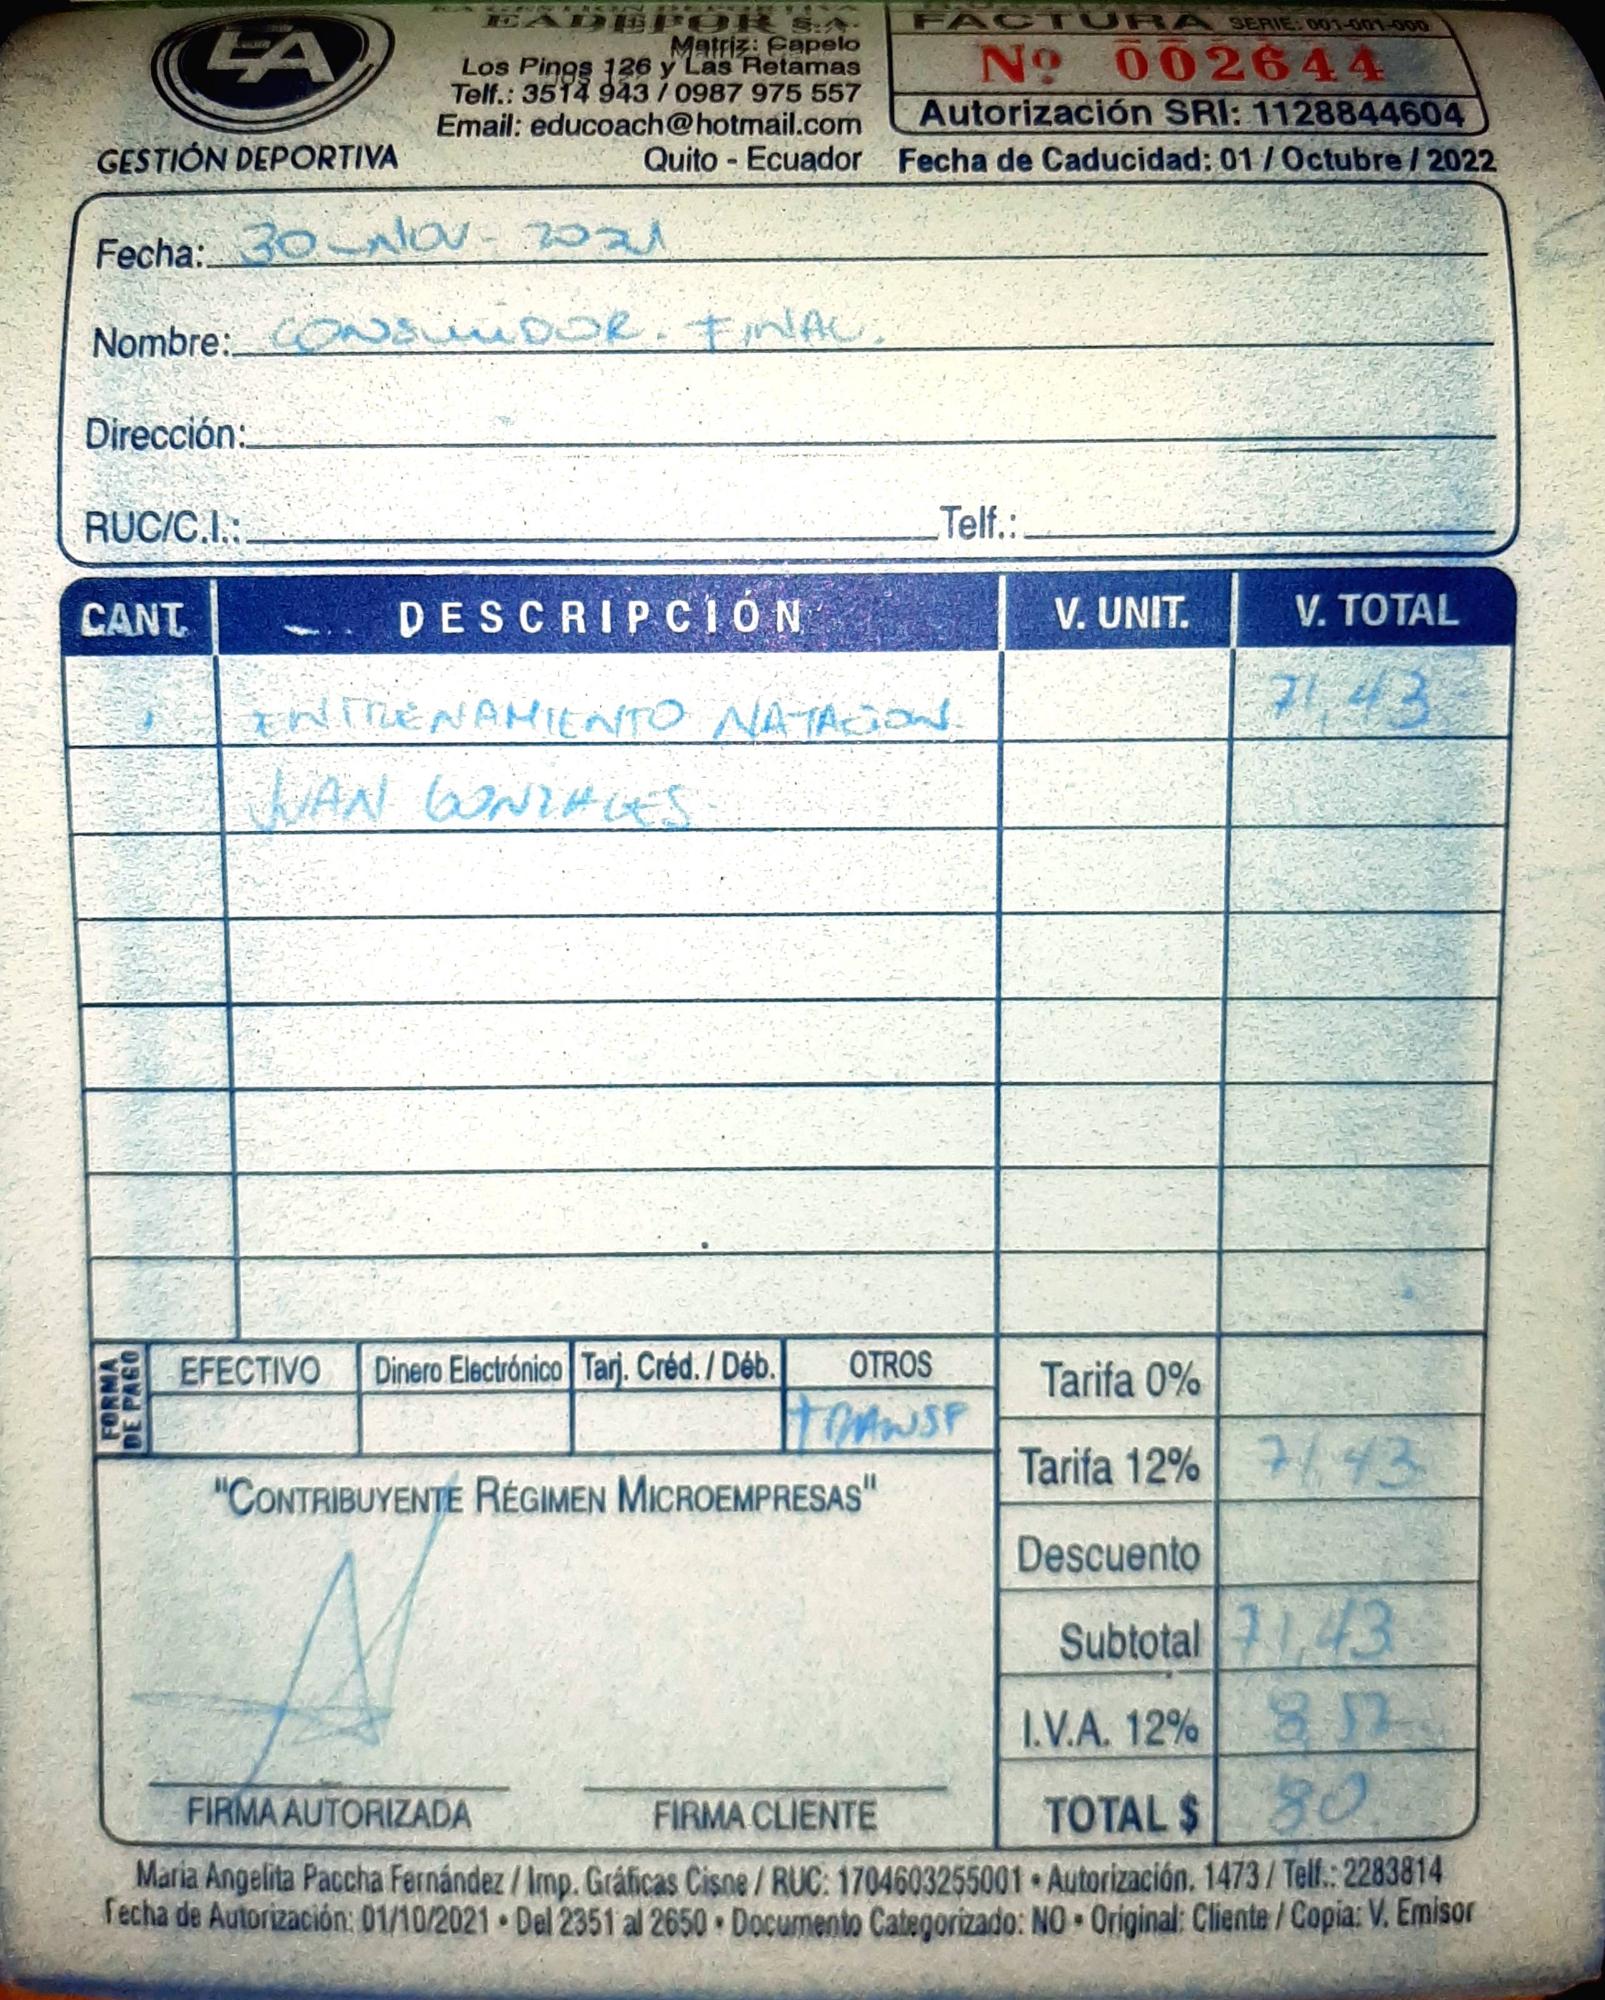 EA
GESTIÓN DEPORTIVA
EA GESTIÓN DEPORTIVA
EADEPOR S.A.
Matriz: Capelo
Los Pinos 126 y Las Retamas
Telf.: 3514 943 / 0987 975 557
Email: educoach@hotmail.com
Quito - Ecuador
FACTURA SERIE: 001-001-000
Nº 002644
Autorización SRI: 1128844604
Fecha de Caducidad: 01 / Octubre / 2022
Fecha: 30-NOV-2021
Nombre: CONSUMIDOR. FINAL.
Dirección:
RUC/C.I.: Telf.:
CANT. DESCRIPCIÓN V. UNIT. V. TOTAL
ENTRENAMIENTO NATACION 71,43
JUAN GONZALES
FORMA DE PAGO
EFECTIVO Dinero Electrónico Tarj. Créd. / Déb. OTROS
TRANSF
Tarifa 0%
Tarifa 12% 71,43
Descuento
Subtotal 71,43
I.V.A. 12% 8,57
TOTAL $ 80
"CONTRIBUYENTE RÉGIMEN MICROEMPRESAS"
FIRMA AUTORIZADA FIRMA CLIENTE
Maria Angelita Paccha Fernández / Imp. Gráficas Cisne / RUC: 1704603255001 • Autorización. 1473 / Telf.: 2283814
Fecha de Autorización: 01/10/2021 • Del 2351 al 2650 • Documento Categorizado: NO • Original: Cliente / Copia: V. Emisor